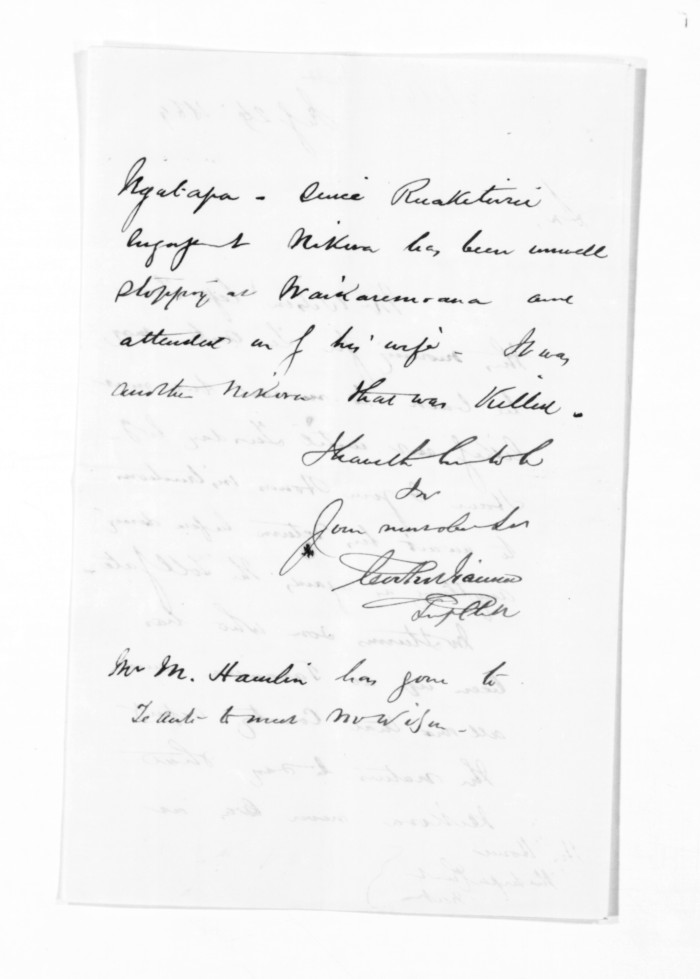 Ngatapa - Since Ruakituri
engagemt Nikora has been unwell
stopping at Waikaremoana and
attended on by his wife - It was
another Nikora that was Killed.
I have the honor to be
Sir
Your most obedt Servt
Mr M. Hamlin has gone to
Te Aute to meet Mr Wilson -